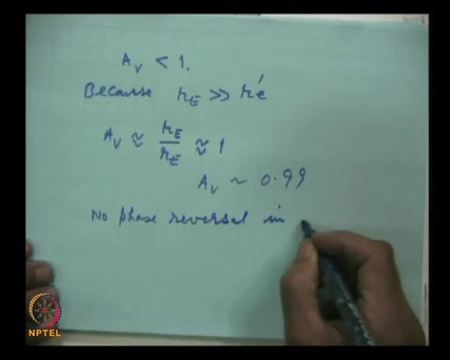 A_V < 1.
Because r_E >> r'e
A_V ≈ r_E/r_E ≈ 1
A_V ~ 0.99
No phase reversal in
NPTEL